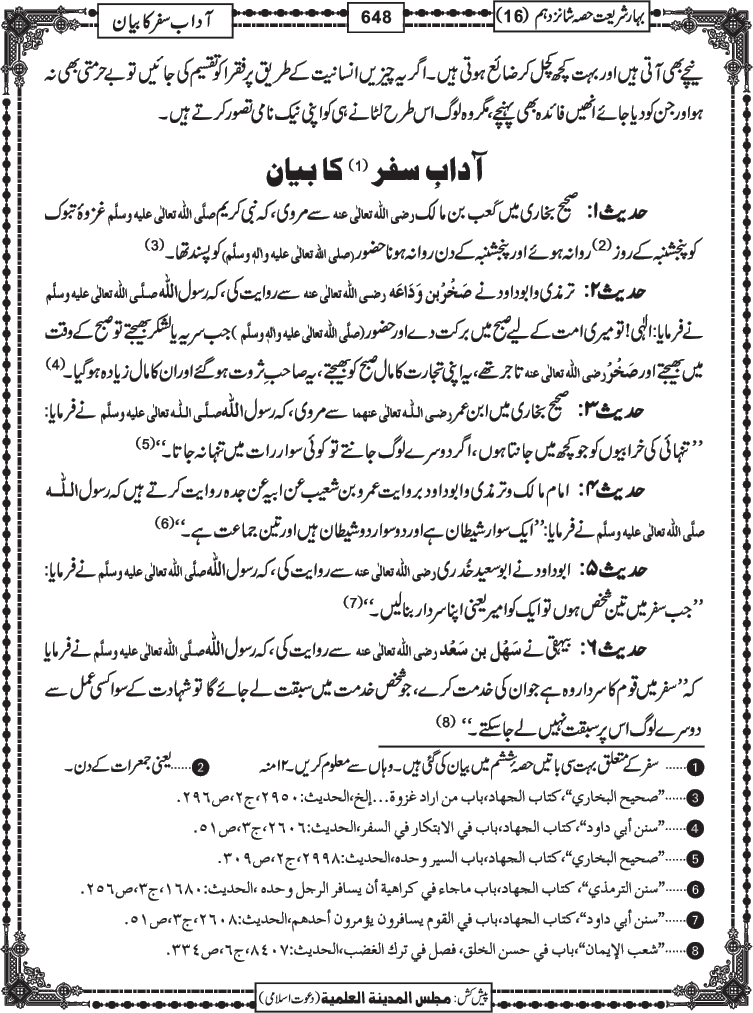 بہارِ شریعت حصہ شانزدہم (16)
648
آداب سفر کا بیان
نیچے بھی آتی ہیں اور بہت کچھ کچل کر ضائع ہوتی ہیں۔ اگر یہ چیزیں انسانیت کے طریق پر فقرا کو تقسیم کی جائیں تو بے حرمتی بھی نہ
ہو اور جن کو دیا جائے انھیں فائدہ بھی پہنچے، مگر وہ لوگ اس طرح لٹانے ہی کو اپنی نیک نامی تصور کرتے ہیں۔
آدابِ سفر (1) کا بیان
حدیث ۱: صحیح بخاری میں کعب بن مالک رضی اللہ تعالٰی عنہ سے مروی، کہ نبی کریم صلَّی اللہ تعالٰی علیہ وسلَّم غزوۂ تبوک
کو پنجشنبہ کے روز (2) روانہ ہوئے اور پنجشنبہ کے دن روانہ ہونا حضور (صلی اللہ تعالٰی علیہ واٰلہٖ وسلَّم) کو پسند تھا۔ (3)
حدیث ۲: ترمذی و ابوداود نے صَخْر بن وَدَاعَہ رضی اللہ تعالٰی عنہ سے روایت کی، کہ رسول اللہ صلَّی اللہ تعالٰی علیہ وسلَّم
نے فرمایا: الٰہی! تو میری امت کے لیے صبح میں برکت دے اور حضور (صلی اللہ تعالٰی علیہ واٰلہٖ وسلَّم) جب سریہ یا لشکر بھیجتے تو صبح کے وقت
میں بھیجتے اور صَخْر رضی اللہ تعالٰی عنہ تاجر تھے، یہ اپنی تجارت کا مال صبح کو بھیجتے، یہ صاحبِ ثروت ہوگئے اور ان کا مال زیادہ ہوگیا۔ (4)
حدیث ۳: صحیح بخاری میں ابن عمر رضی اللہ تعالٰی عنہما سے مروی، کہ رسول اللہ صلَّی اللہ تعالٰی علیہ وسلَّم نے فرمایا:
’’تنہائی کی خرابیوں کو جو کچھ میں جانتا ہوں، اگر دوسرے لوگ جانتے تو کوئی سوار رات میں تنہا نہ جاتا۔‘‘ (5)
حدیث ۴: امام مالک و ترمذی و ابوداود بروایت عمرو بن شعیب عن ابیہ عن جدہ روایت کرتے ہیں کہ رسول اللہ
صلَّی اللہ تعالٰی علیہ وسلَّم نے فرمایا: ’’ایک سوار شیطان ہے اور دو سوار دو شیطان ہیں اور تین جماعت ہے۔‘‘ (6)
حدیث ۵: ابوداود نے ابوسعید خُدری رضی اللہ تعالٰی عنہ سے روایت کی، کہ رسول اللہ صلَّی اللہ تعالٰی علیہ وسلَّم نے فرمایا:
’’جب سفر میں تین شخص ہوں تو ایک کو امیر یعنی اپنا سردار بنالیں۔‘‘ (7)
حدیث ۶: بیہقی نے سَهْل بن سَعْد رضی اللہ تعالٰی عنہ سے روایت کی، کہ رسول اللہ صلَّی اللہ تعالٰی علیہ وسلَّم نے فرمایا
کہ ’’سفر میں قوم کا سردار وہ ہے جو ان کی خدمت کرے، جو شخص خدمت میں سبقت لے جائے گا تو شہادت کے سوا کسی عمل سے
دوسرے لوگ اس پر سبقت نہیں لے جاسکتے۔‘‘ (8)
1 ...... سفر کے متعلق بہت سی باتیں حصۂ ششم میں بیان کی گئی ہیں۔ وہاں سے معلوم کریں۔ ۱۲ منہ 2 ...... یعنی جمعرات کے دن۔
3 ...... ”صحيح البخاري“، كتاب الجهاد، باب من اراد غزوة... إلخ، الحديث: ۲۹۵۰، ج۲، ص۲۹۶.
4 ...... ”سنن أبي داود“، كتاب الجهاد، باب في الابتكار في السفر، الحديث: ۲۶۰۶، ج۳، ص۵۱.
5 ...... ”صحيح البخاري“، كتاب الجهاد، باب السير وحده، الحديث: ۲۹۹۸، ج۲، ص۳۰۹.
6 ...... ”سنن الترمذي“، كتاب الجهاد، باب ماجاء في كراهية أن يسافر الرجل وحده، الحديث: ۱۶۸۰، ج۳، ص۲۵۶.
7 ...... ”سنن أبي داود“، كتاب الجهاد، باب في القوم يسافرون يؤمرون أحدهم، الحديث: ۲۶۰۸، ج۳، ص۵۱.
8 ...... ”شعب الإيمان“، باب في حسن الخلق، فصل في ترك الغضب، الحديث: ۸۴۰۷، ج۶، ص۳۳۴.
پیش کش: مجلس المدینة العلمیة (دعوت اسلامی)